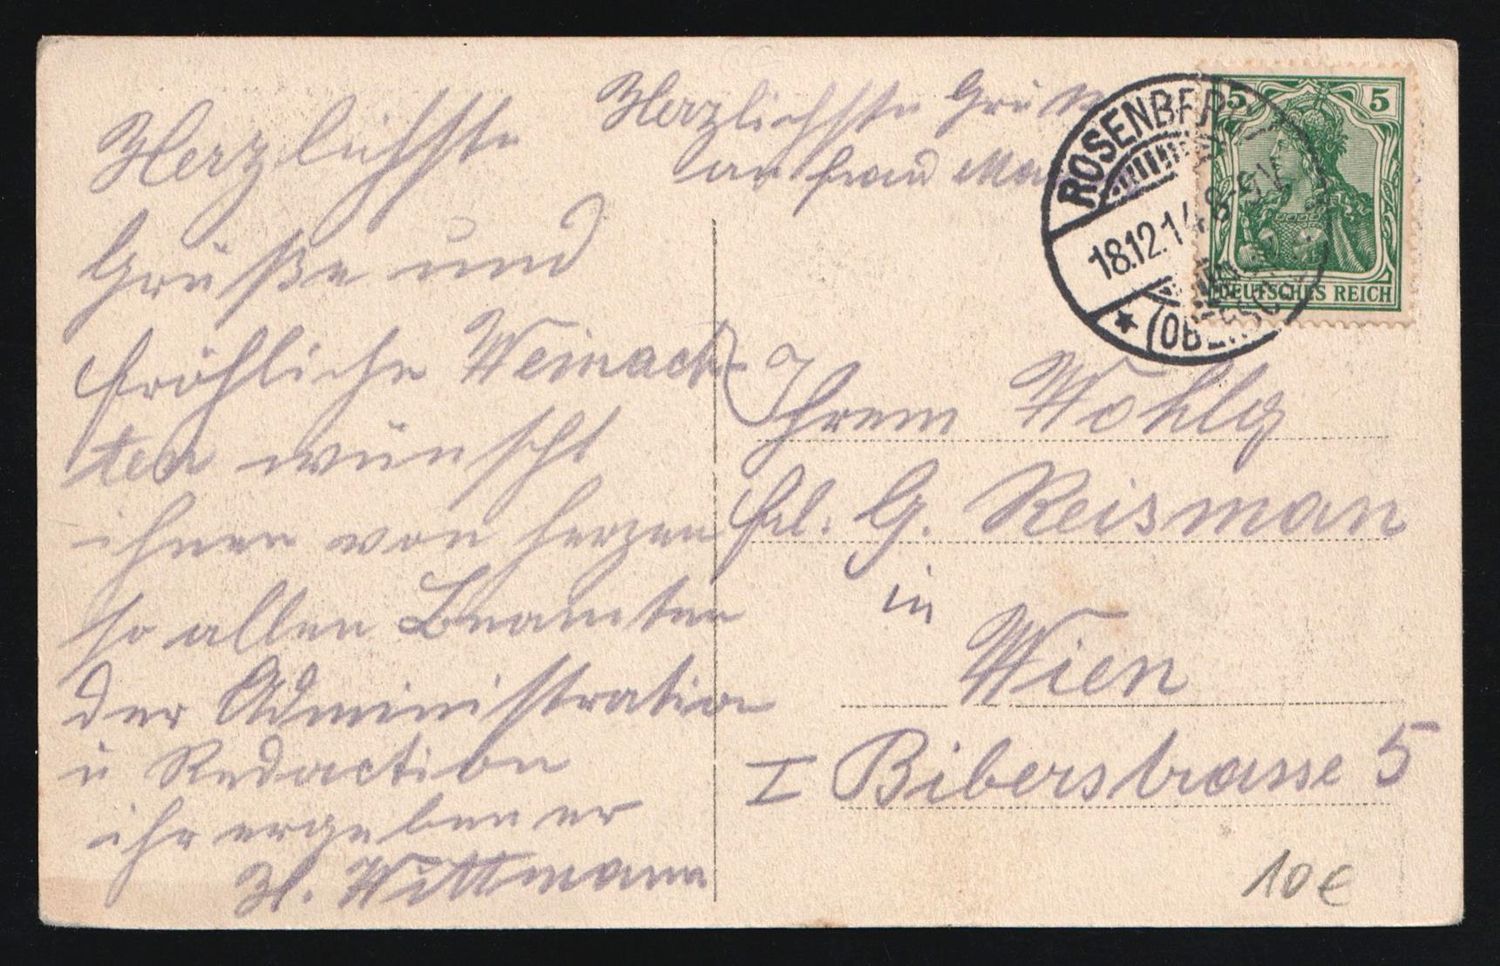 Herzlichste
Grüße und
fröhliche Weinach-
ten wünscht
ihnen von herzen
so allen Beamten
der Administration
u Redaction
ihr ergebener
H. Wittmann
Herzlichste Grüße
an frau
ROSENBERG
18.12.14. 8-9V.
* (OBERSC
5 5
DEUTSCHES REICH
Ihrem Wohlg
Frl. G. Reisman
in
Wien
I Biberstrasse 5
10€